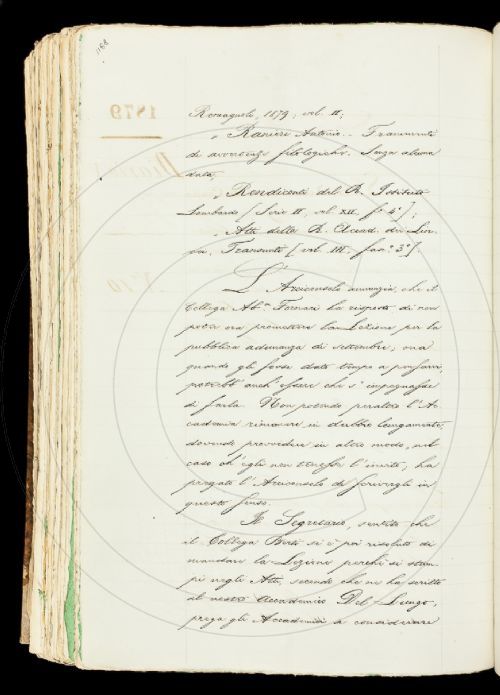 1168
1879
Romagnoli, 1879; vol. II;
„ Ranieri Antonio. – Frammenti
di avvertenze filologiche. Senza alcuna
data;
„ Rendiconti del R. Istituto
Lombardo [Serie II, vol. XII. f.º 4º];
„ Atti della R. Accad. dei Lin-
cei, Transunti [vol. III. fasc.º 3º].
L'Arciconsolo annunzia, che il
Collega Ab.e Fornari ha risposto di non
poter ora promettere la Lezione per la
pubblica adunanza di settembre; ma
quando gli fosse dato tempo a pensarvi,
potrebb' anch' essere che s' impegnasse
di farla. Non potendo peraltro l'Ac-
cademia rimanere in dubbio lungamente,
dovendo provvedere in altro modo, nel
caso ch' egli non tenesse l'invito, ha
pregato l'Arciconsolo di scrivergli in
questo senso.
Il Segretario, sentito che
il Collega Berti si è poi risoluto di
mandare la Lezione perchè si stam-
pi negli Atti, secondo che ne ha scritto
al nostro Accademico Del Lungo,
prega gli Accademici a considerare